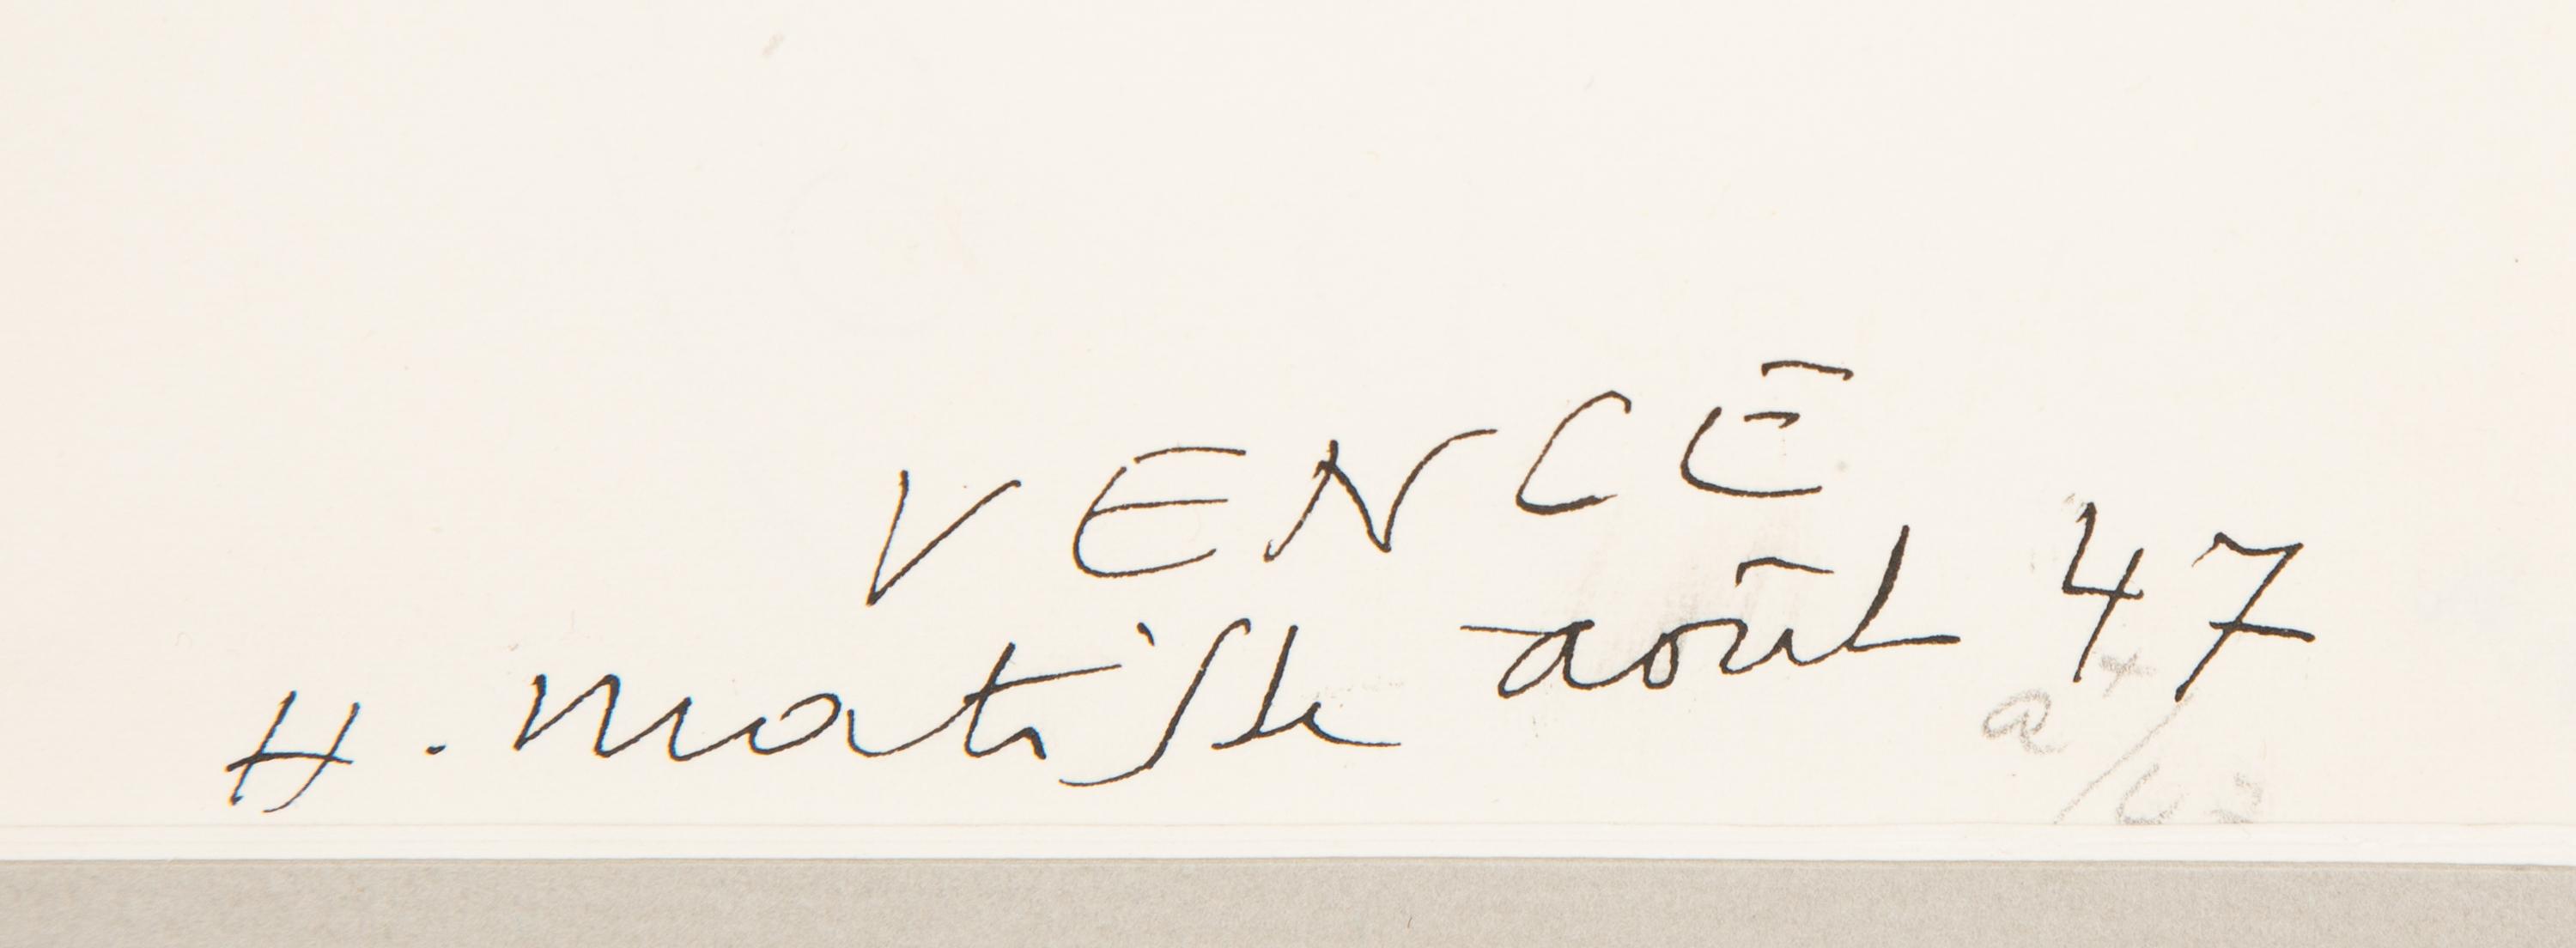 VENCE
H. matisse août 47